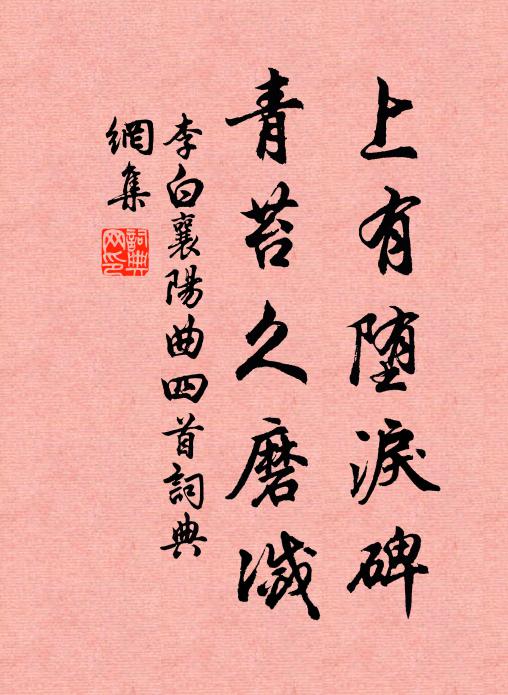 上有堕淚碑
青苔久磨滅
李白襄陽曲四首詞典
網集
詞典
網印